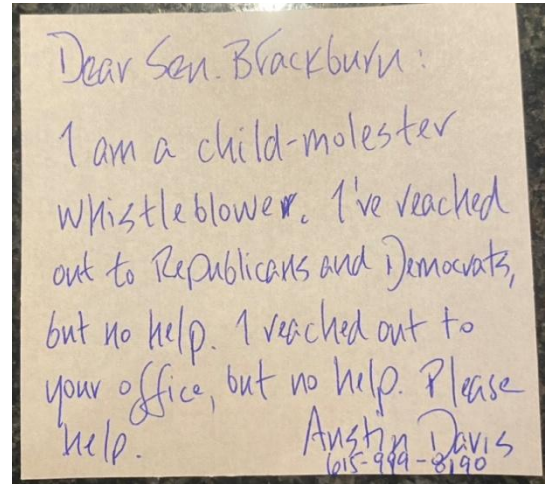 Dear Sen. Blackburn:
I am a child-molester
whistleblower. I've reached
out to Republicans and Democrats,
but no help. I reached out to
your office, but no help. Please
help. Austin Davis
615-999-8190